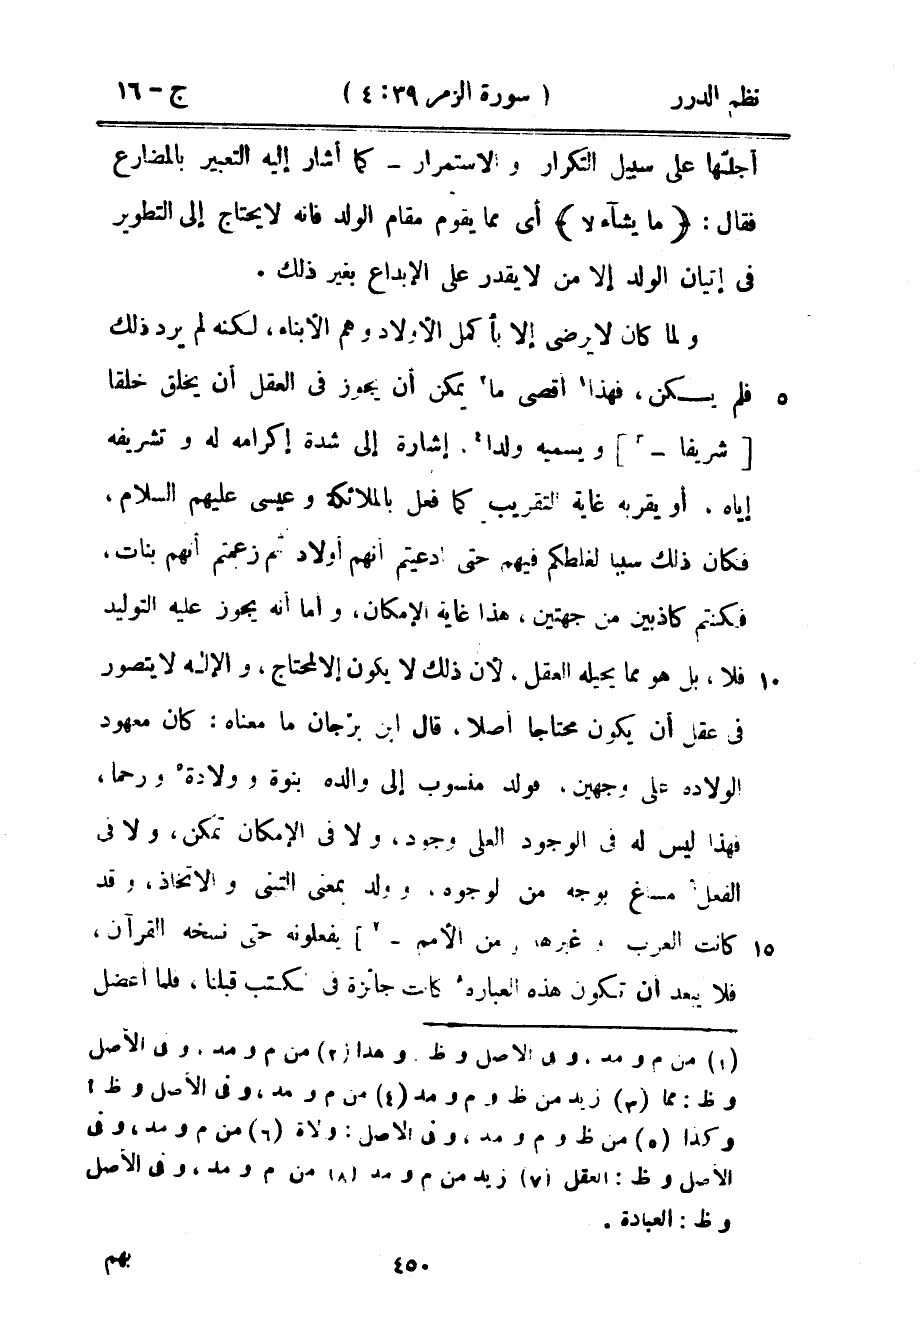 نظم الدرر ( سورة الزمر ٣٩ : ٤ ) ج - ١٦
أجلّها على سبيل التكرار و الاستمرار - كما أشار إليه التعبير بالمضارع
فقال : ﴿ ما يشآء لا ﴾ أى مما يقوم مقام الولد فانه لا يحتاج إلى التطوير
فى إتيان الولد إلا من لا يقدر على الإبداع بغير ذلك .
و لما كان لا يرضى إلا بأكمل الأولاد و هم الأبناء ، لكنه لم يرد ذلك
٥ فلم يكن ، فهذا١ أقصى ما٢ يمكن أن يجوز فى العقل أن يخلق خلقا
[ شريفا - ٣ ] و يسميه ولدا٤ . إشارة إلى شدة إكرامه له و تشريفه
إياه . أو يقربه غاية التقريب كما فعل بالملائكة و عيسى عليهم السلام ،
فكان ذلك سببا لغلطكم فيهم حتى ادعيتم أنهم أولاد ثم زعمتم أنهم بنات ،
فكنتم كاذبين من جهتين ، هذا غاية الإمكان ، و أما أنه يجوز عليه التوليد
١٠ فلا ، بل هو مما يحيله العقل . لأن ذلك لا يكون إلا لمحتاج ، و الإله لا يتصور
فى عقل أن يكون محتاجا أصلا . قال ابن برّجان ما معناه : كان معهود
الولاده على وجهين . فولد منسوب إلى والده بنوة و ولادة٥ و رحما ،
فهذا ليس له فى الوجود العلى وجود ، و لا فى الإمكان تمكن ، و لا فى
الفعل٦ مساغ بوجه من لوجوه . و ولد بمعنى التبنى و الاتخاذ ، و قد
١٥ كانت العرب و غيرها [ من الأمم - ٧ ] يفعلونه حتى نسخه القرآن ،
فلا يبعد أن تكون هذه العباره٨ كانت جائزة فى الكتب قبلنا ، فلما أعضل
(١) من م و مد ، و فى الاصل و ظ : و هذا (٢) من م و مد ، و فى الأصل
و ظ : مما (٣) زيد من ظ و م و مد (٤) من م و مد ، و فى الأصل و ظ :
و كذا (٥) من ظ و م و مد ، و فى الاصل : ولاة (٦) من م و مد ، و فى
الأصل و ظ : العقل (٧) زيد من م و مد (٨) من م و مد ، و فى الأصل
و ظ : العبادة .
٤٥٠ بهم